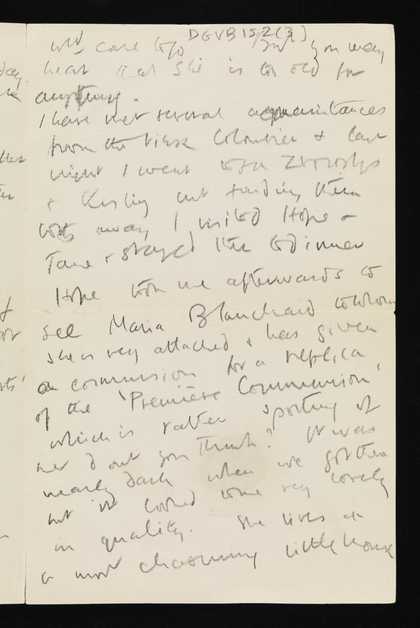 DGVB 152(3)
wld care to go but you may
hear that she is too old for
anything.
I have met several acquaintances
from the Vieux Colombier & last
night I went to see
& but finding them
both away I visited Hope &
Jane & stayed there to dinner
Hope took me afterwards to
see Maria Blanchard to whom
she is very attached & has given
a commission for a replica
of the 'Première Communion',
which is rather sporting of
her don't you think? It was
nearly dark when we got there
but it looked to me very lovely
in quality. She lives in
a most charming little house